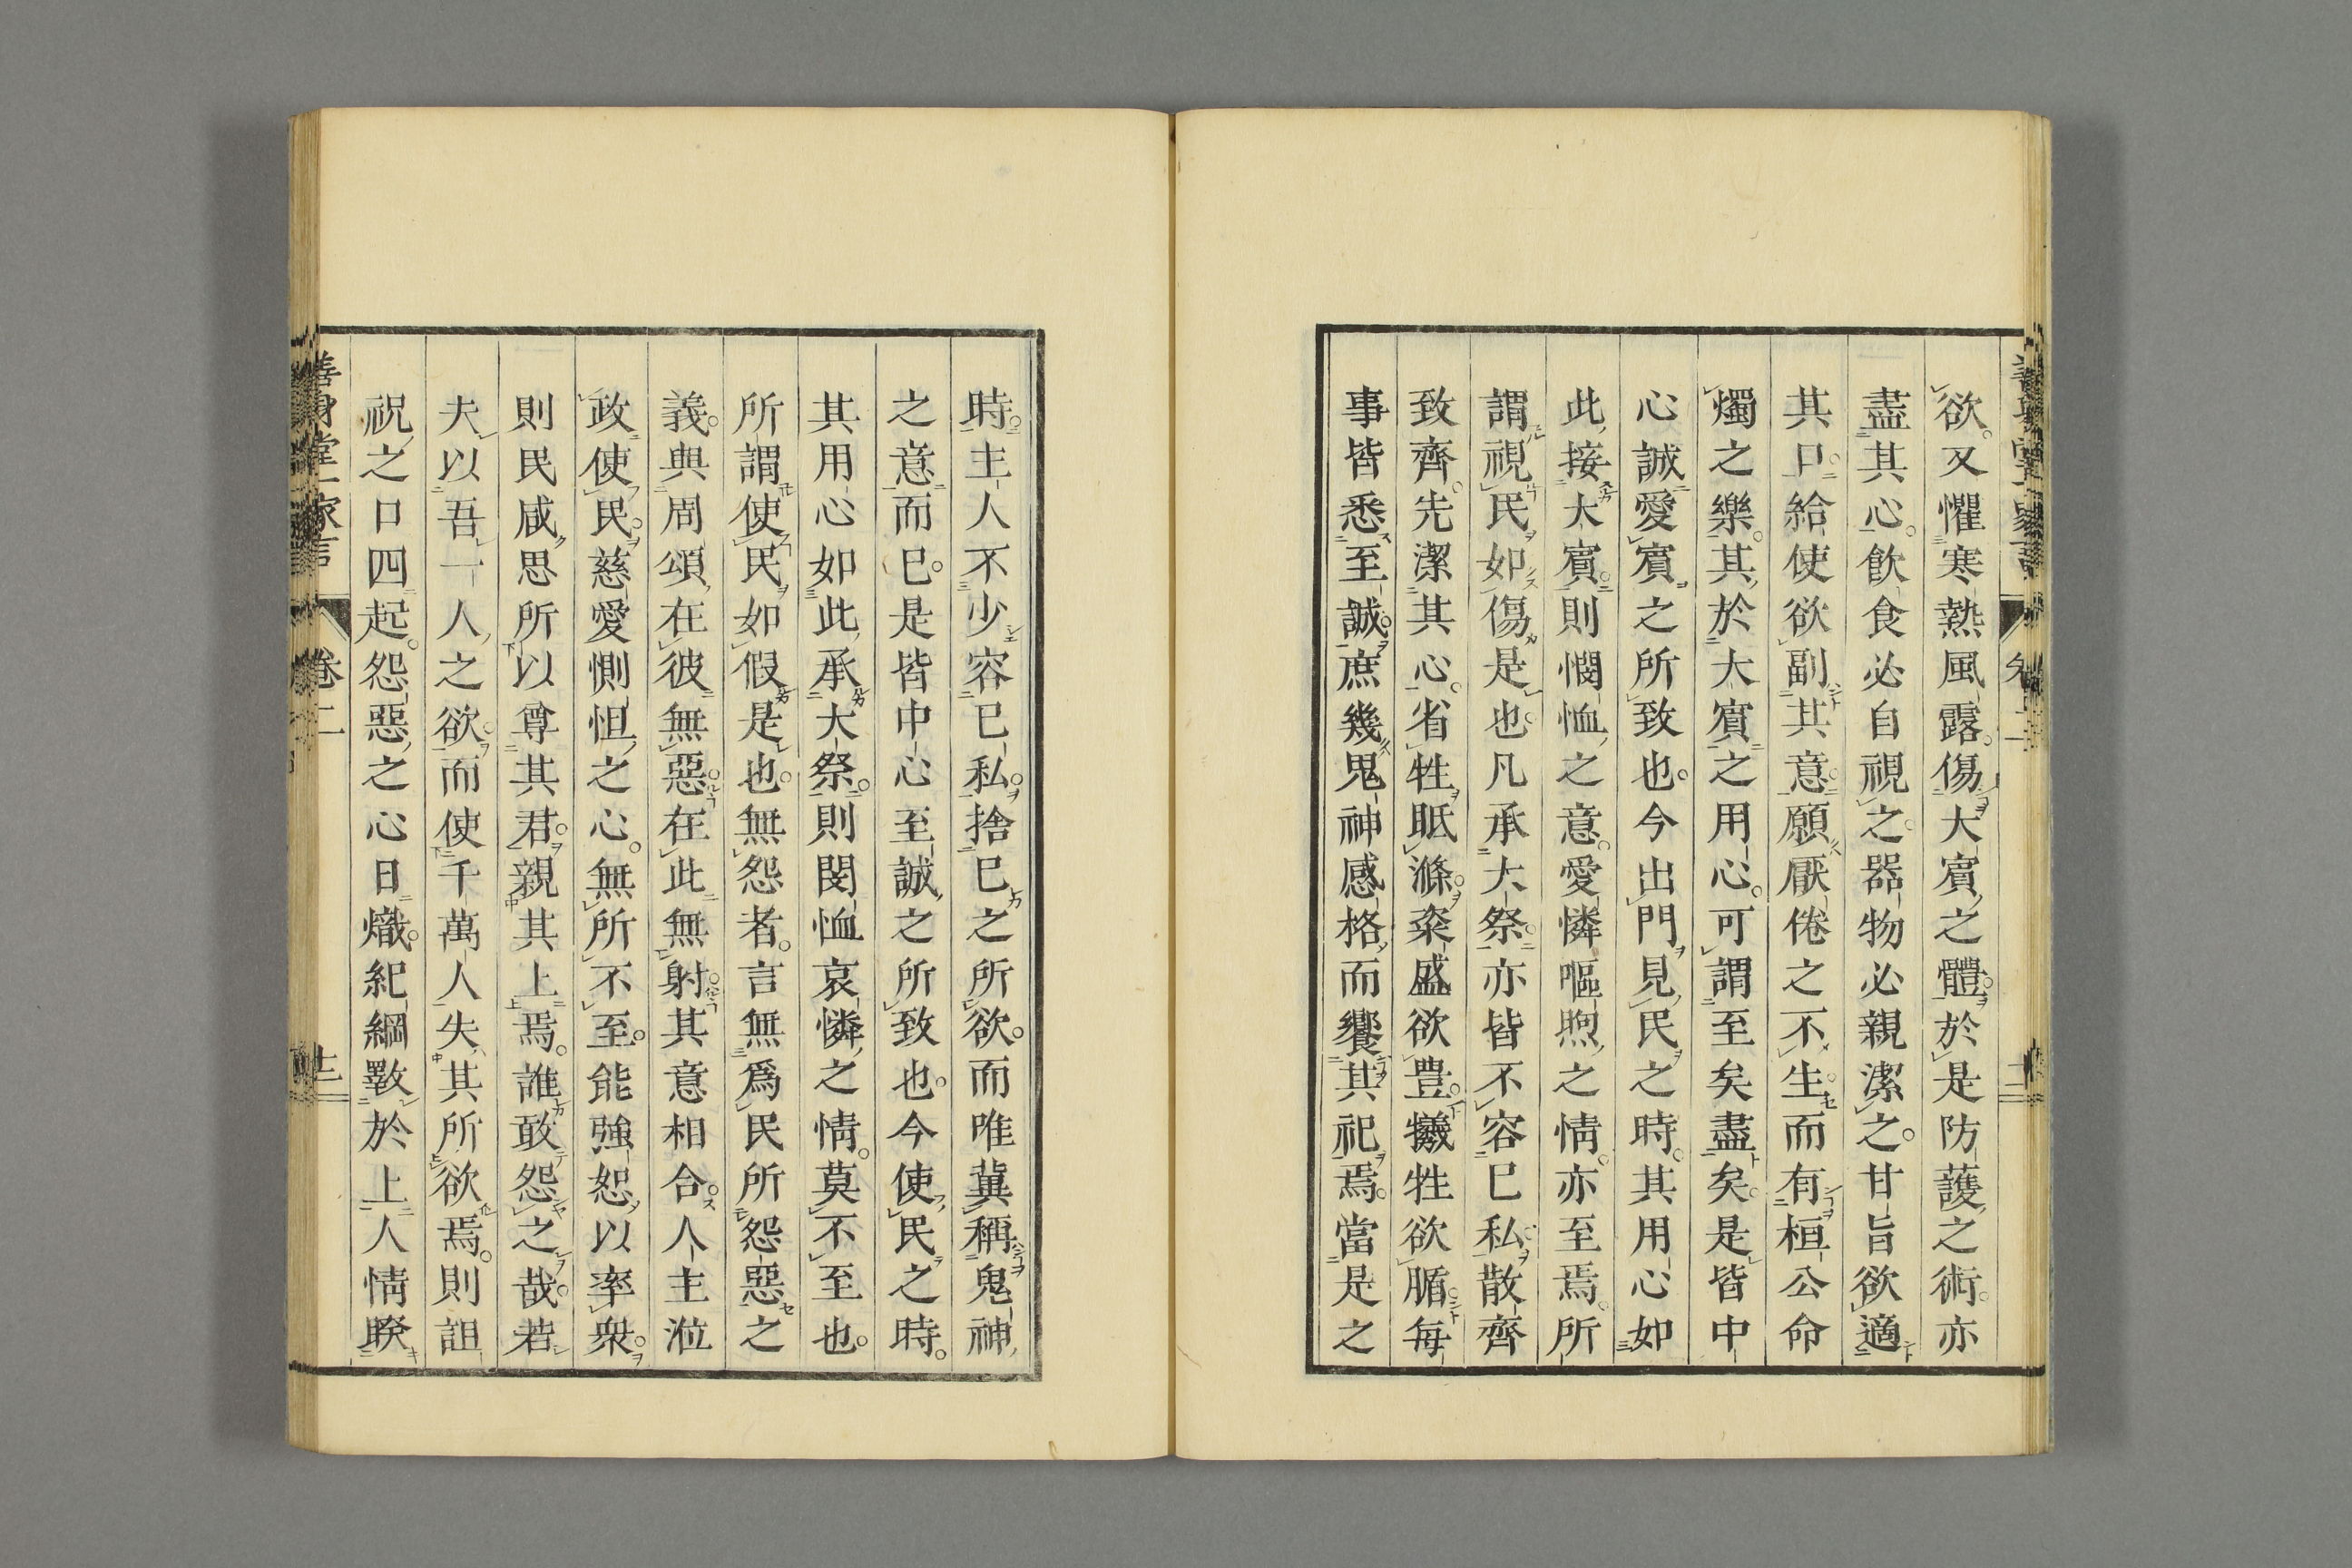 欲。又懼寒熱風露。傷大賓之體。於是防護之術。亦
盡其心。飲食必自視之。器物必親潔之。甘旨欲適
其口。給使欲副其意。願厭倦之不生。而有桓公命
燭之樂。其於大賓之用心。可謂至矣盡矣。是皆中
心誠愛賓之所致也。今出門見民之時。其用心如
此。接大賓。則憫恤之意。愛憐嘔煦之情。亦至焉。所
謂視民如傷是也。凡承大祭。亦皆不容已私。散齊
致齊。先潔其心。省牲眡滌。粢盛欲豊。犧牲欲腯。每
事皆悉至誠。庶幾鬼神感格而饗其祀焉。當是之
時。主人不少容已私。捨已之所欲。而唯冀稱鬼神
之意而已。是皆中心至誠之所致也。今使民之時。
其用心如此。承大祭。則閔恤哀憐之情。莫不至也。
所謂使民如假是也。無怨者。言無爲民所怨惡之
義。與周頌在彼無惡。在此無射。其意相合。人主涖
政使民。慈愛惻怛之心。無所不至。能強恕以率衆。
則民咸思所以尊其君。親其上焉。誰敢怨之哉。若
夫以吾一人之欲。而使千萬人失其所欲焉。則詛
祝之口四起。怨惡之心日熾。紀綱斁於上。人情睽
善身堂一家言 卷二 十二